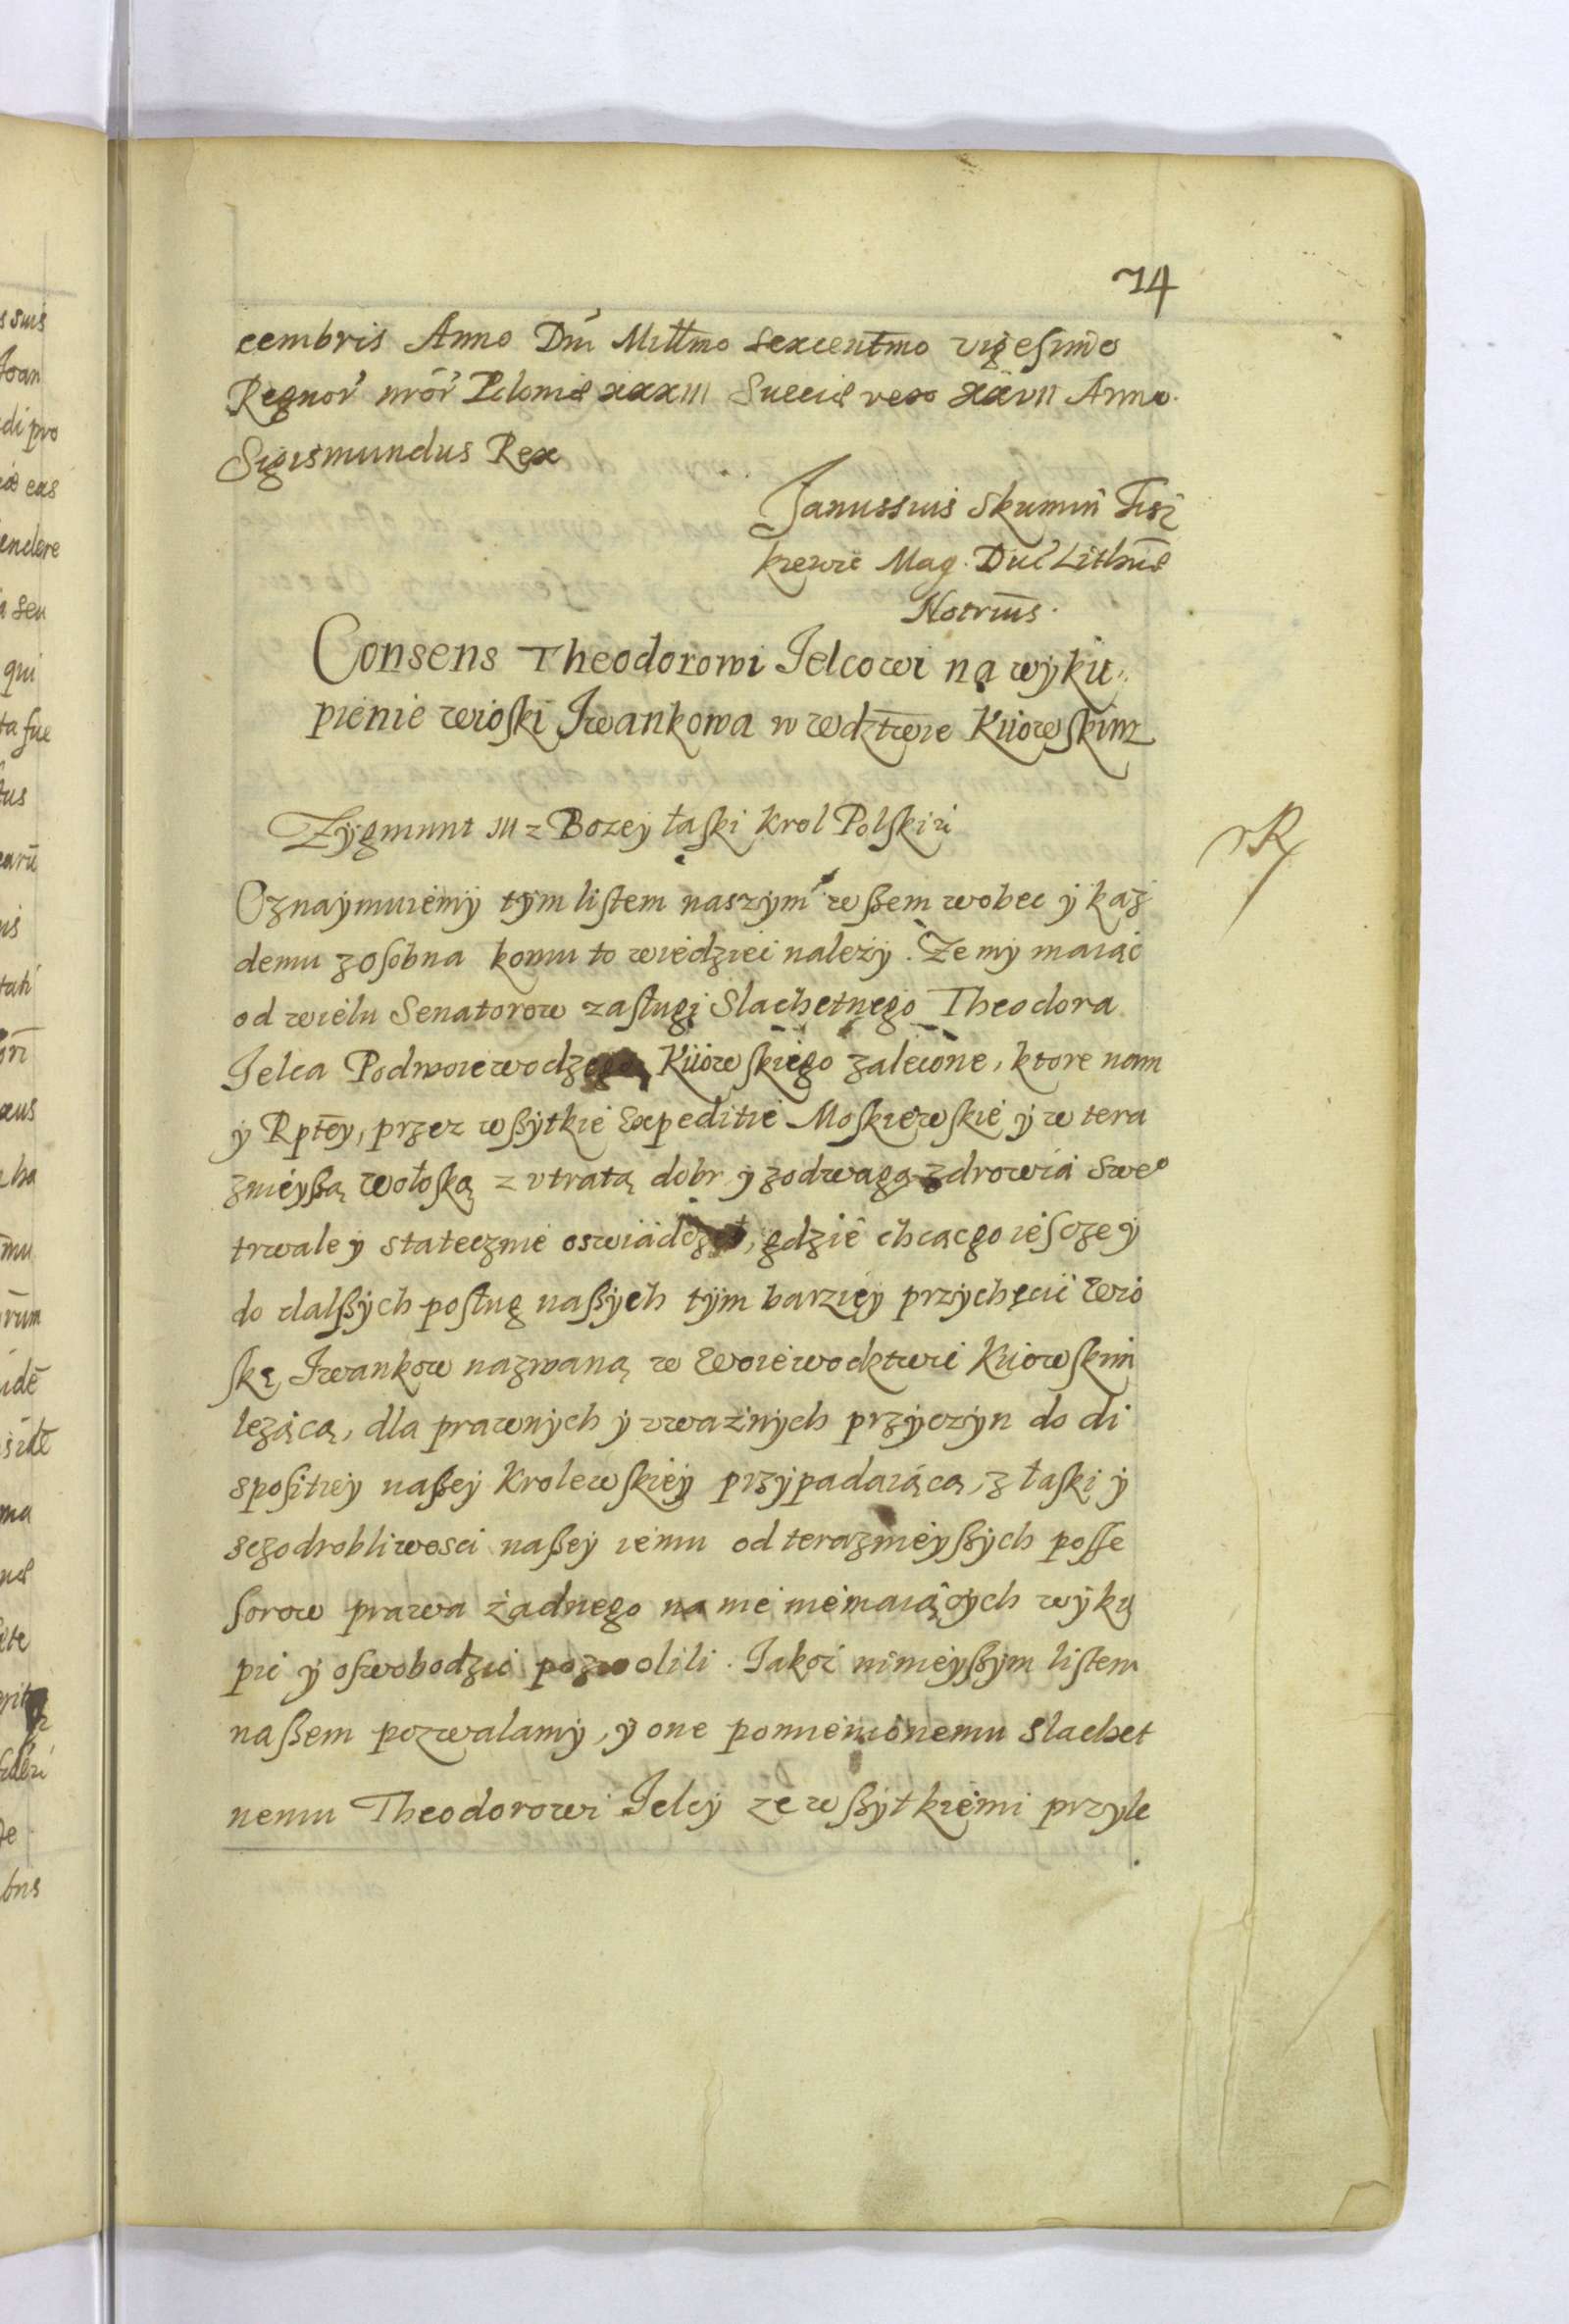 74
cembris Anno Dni Millmo sexcentmo vigesimo
Regnor nror Poloniæ xxxIII Sueciæ vero xxvII Anno.
Sigismundus Rex
Janussius Skumin Tisz
kiewic Mag. Duc Lithnæ
Notrius.
Consens Theodorowi Jelcowi na wyku„
pienie wioski Iwankowa w wdztwie Kiiowskim
Zygmunt III z Bozey łaski Krol Polski ii
Oznaymuiemy tym listem naszym wßem wobec y kaz
demu zosobna komu to wiedziec należy. Ze my maiąc
od wielu Senatorow zasługi Slachetnego Theodora
Jelca Podwoiewodzego Kiiowskiego zalecone, ktore nam
y Rptey, przez wßytkie Expeditie Moskiewskie y w tera
znieyßą wołoską z vtratą dobr y zodwagą zdrowia sweo
trwale y statecznie oswiadczył, gdzie chcąc go iescze y
do dalßych posług naßych tym barziey przychęcic wio
skę Iwankow nazwaną w woiewodztwie Kiiowskim
lezącą, dla prawnych y vważnych przyczyn do di
spositiey naßey Krolewskiey przypadaiącą, z łaski y
sczodrobliwosci naßey iemu od teraznieyßych posse
sorow prawa żadnego na nie niemaiących wyku
pic y oswobodzic pozwolili. Iakoz ninieyßym listem
naßem pozwalamy, y one pomienionemu slachet
nemu Theodorowi Jelcy ze wßytkiemi przyle